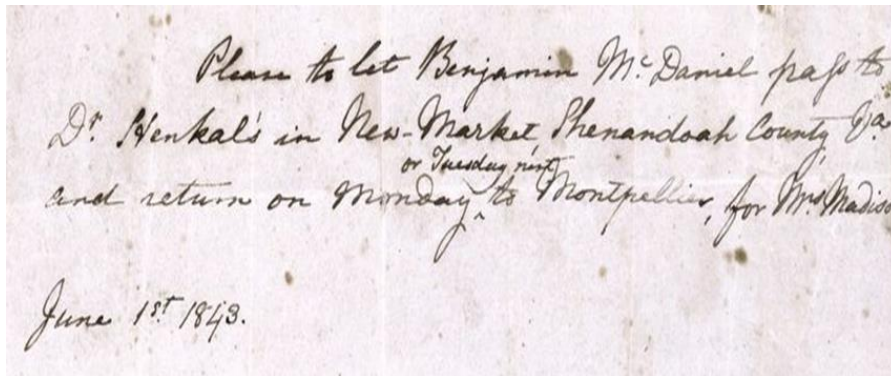 Please to let Benjamin McDaniel pass to
Dr. Henkal's in New-Market, Shenandoah County, Va.
or Tuesday next
and return on Monday ^ to Montpellier, for Mrs. Madiso
June 1st 1843.